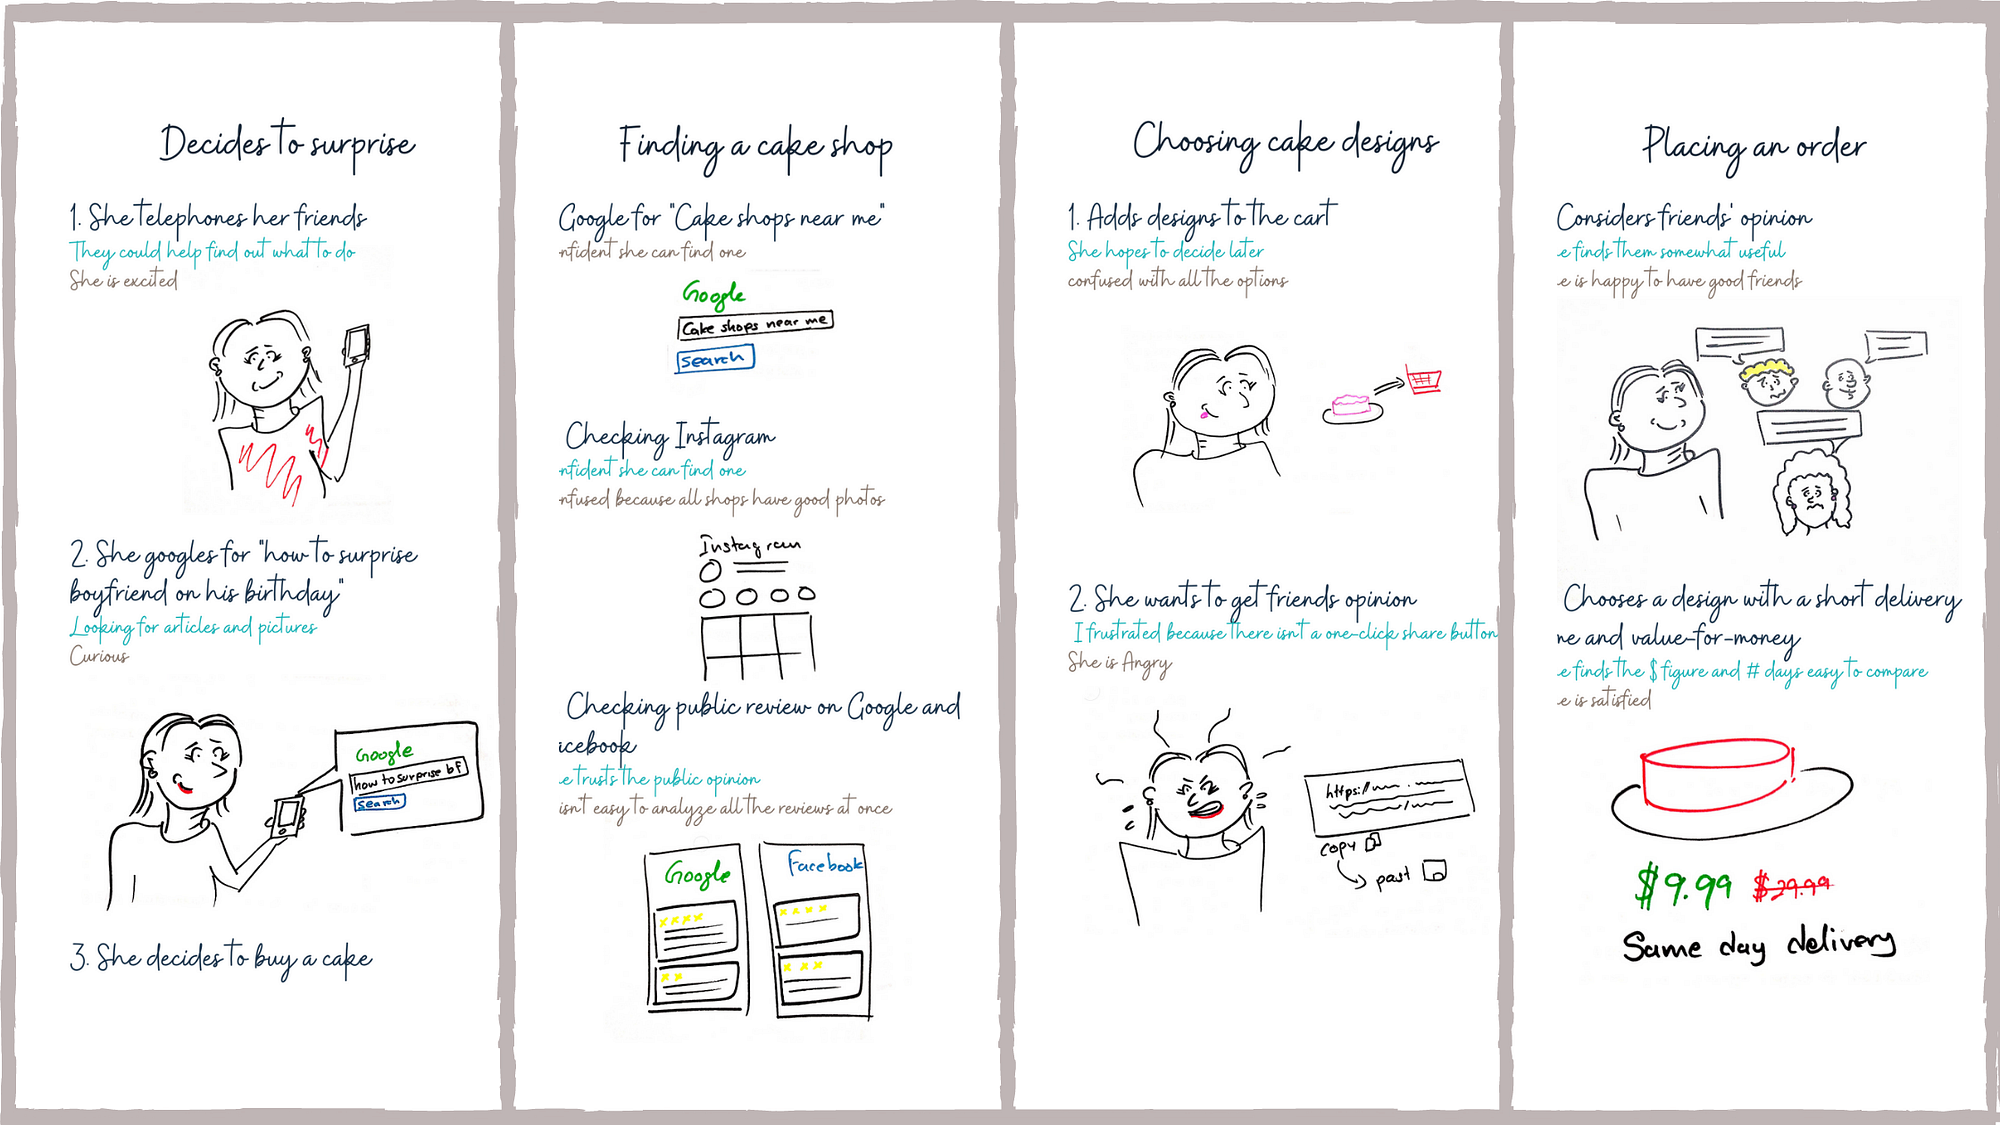 Decides to surprise
1. She telephones her friends
They could help find out what to do
She is excited
2. She googles for "how to surprise
boyfriend on his birthday"
Looking for articles and pictures
Curious
Google
how to surprise bf
search
3. She decides to buy a cake
Finding a cake shop
Google for "Cake shops near me"
nfident she can find one
Google
Cake shops near me
search
Checking Instagram
nfident she can find one
nfused because all shops have good photos
Instagram
Checking public review on Google and
icebook
e trusts the public opinion
isn't easy to analyze all the reviews at once
Google
Facebook
Choosing cake designs
1. Adds designs to the cart
She hopes to decide later
confused with all the options
2. She wants to get friends opinion
I frustrated because there isn't a one-click share button
She is Angry
https://
copy
past
Placing an order
Considers friends' opinion
e finds them somewhat useful
e is happy to have good friends
Chooses a design with a short delivery
ne and value-for-money
e finds the $ figure and # days easy to compare
e is satisfied
$9.99 $29.99
Same day delivery